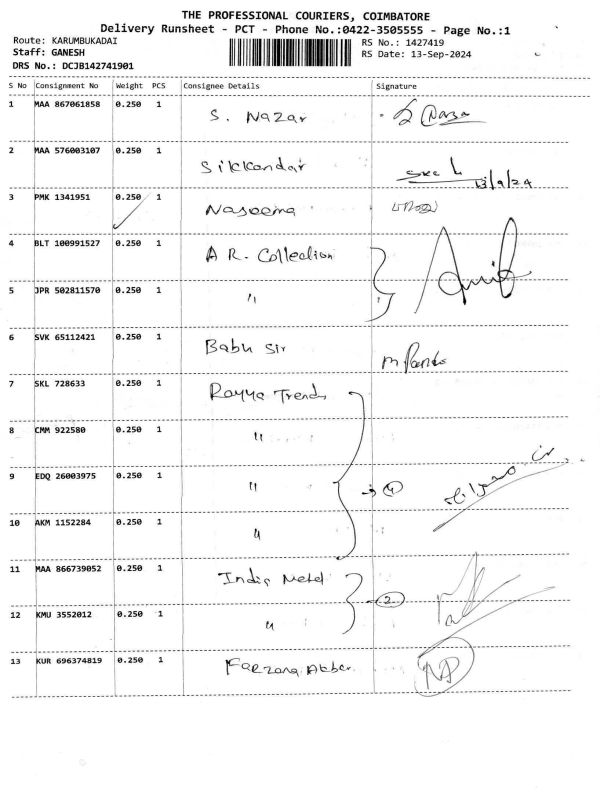 THE PROFESSIONAL COURIERS, COIMBATORE
Delivery Runsheet - PCT - Phone No.:0422-3505555 - Page No.:1
Route: KARUMBUKADAI RS No.: 1427419
Staff: GANESH RS Date: 13-Sep-2024
DRS No.: DCJB142741901
S No Consignment No Weight PCS Consignee Details Signature
1 MAA 867061858 0.250 1 S. Nazar
2 MAA 576003107 0.250 1 Sikkandar 13/9/24
3 PMK 1341951 0.250 1 Naseema
4 BLT 100991527 0.250 1 A R. Collection
5 JPR 502811570 0.250 1 "
6 SVK 65112421 0.250 1 Babu Sir
7 SKL 728633 0.250 1 Rayya Trends
8 CMM 922580 0.250 1 "
9 EDQ 26003975 0.250 1 " 4
10 AKM 1152284 0.250 1 "
11 MAA 866739052 0.250 1 India Metel
12 KMU 3552012 0.250 1 " 2
13 KUR 696374819 0.250 1 Farzana Akber